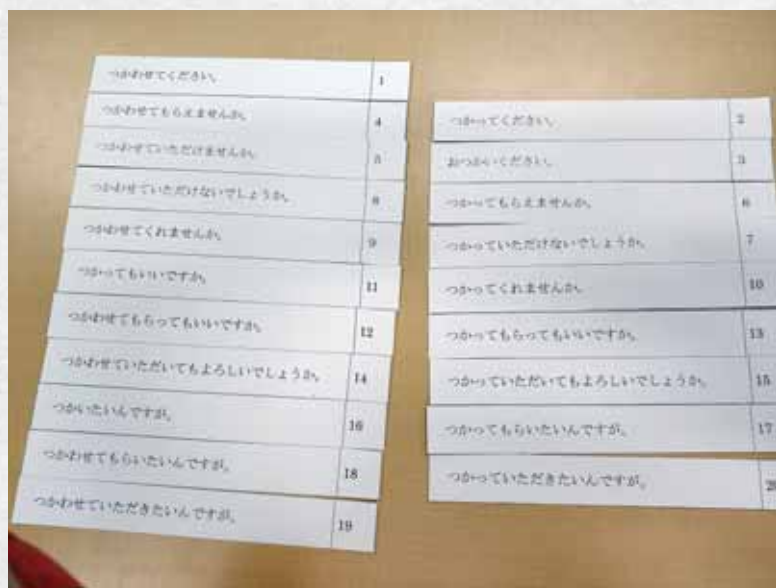 つかわせてください。 1
つかわせてもらえませんか。 4
つかわせていただけませんか。 5
つかわせていただけないでしょうか。 8
つかわせてくれませんか。 9
つかってもいいですか。 11
つかわせてもらってもいいですか。 12
つかわせていただいてもよろしいでしょうか。 14
つかいたいんですが。 16
つかわせてもらいたいんですが。 18
つかわせていただきたいんですが。 19
つかってください。 2
おつかいください。 3
つかってもらえませんか。 6
つかっていただけないでしょうか。 7
つかってくれませんか。 10
つかってもらってもいいですか。 13
つかっていただいてもよろしいでしょうか。 15
つかってもらいたいんですが。 17
つかっていただきたいんですが。 20